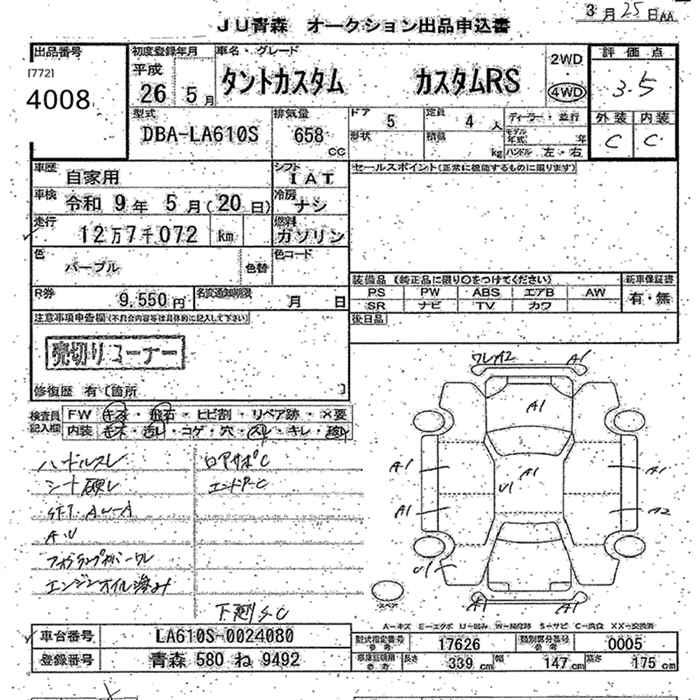 3月25日AA
JU青森 オークション出品申込書
出品番号
[772]
4008
初度登録年月
平成
26 5月
車名・グレード
タントカスタム カスタムRS
2WD
4WD
評価点
3.5
外装 内装
C C
型式
DBA-LA610S
排気量
658
CC
ドア
5
定員
4人
形状
積載
kg
ディーラー・並行
モデル年式 年
ハンドル 左・右
車歴
自家用
シフト
IAT
セールスポイント(正常に機能するものに限ります)
車検
令和 9年 5月(20日)
冷房
ナシ
走行
12万7千072 km
燃料
ガソリン
色
パープル
色替
色コード
R券
9,550円
名変通知期限
月 日
装備品 (純正品に限り○をつけてください)
PS PW ABS エアB AW
SR ナビ TV カワ
新車保証書
有・無
後日品
注意事項申告欄(不具合内容等は具体的に記入して下さい)
売切りコーナー
修復歴 有[箇所 ]
検査員記入欄
FW キズ・飛石・ヒビ割・リペア跡・X要
内装 キズ・汚れ・コゲ・穴・スレ・キレ
ハンドルスレ
シート破レ
エンジンオイル滲み
下廻りS・C
ワレA2 A1
A1
A1
A1 A1
U1
A1 A2
U1
A1 A1
スペア
A−キズ E−エクボ U−凹み W−補修跡 S−サビ C−腐食 XX−交換済
車台番号
LA610S-0024080
登録番号
青森 580 ね 9492
型式指定番号
参考
17626
類別区分番号
参考
0005
参考
長さ 339cm 幅 147cm 高さ 175cm